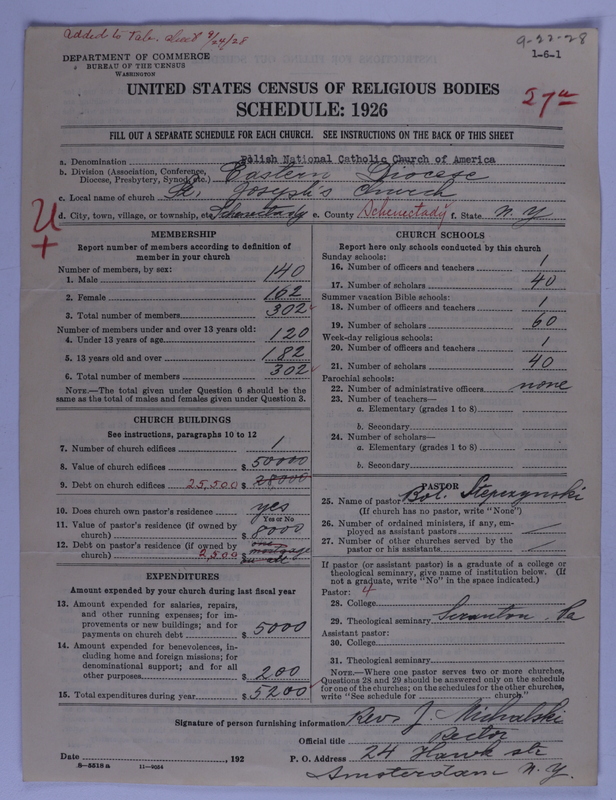 Added to Tab. 9/24/28
9-22-28
DEPARTMENT OF COMMERCE
BUREAU OF THE CENSUS
WASHINGTON
1-6-1
UNITED STATES CENSUS OF RELIGIOUS BODIES
SCHEDULE: 1926
27
FILL OUT A SEPARATE SCHEDULE FOR EACH CHURCH. SEE INSTRUCTIONS ON THE BACK OF THIS SHEET
a. Denomination Polish National Catholic Church of America
b. Division (Association, Conference, Diocese, Presbytery, Synod, etc.) Eastern Diocese
c. Local name of church St. Joseph's Church
d. City, town, village, or township, etc. Schenectady e. County Schenectady f. State N. Y.
MEMBERSHIP
Report number of members according to definition of
member in your church
Number of members, by sex:
1. Male 140
2. Female 162
3. Total number of members 302
Number of members under and over 13 years old:
4. Under 13 years of age 120
5. 13 years old and over 182
6. Total number of members 302
NOTE.—The total given under Question 6 should be
same as the total of males and females given under Question 3.
CHURCH BUILDINGS
See instructions, paragraphs 10 to 12
7. Number of church edifices 1
8. Value of church edifices $ 50000
9. Debt on church edifices 25,500 $ 28000
10. Does church own pastor's residence yes
Yes or No
11. Value of pastor's residence (if owned by
church) $ 8000
12. Debt on pastor's residence (if owned by
church) 2,500 $ one mortgage on all
EXPENDITURES
Amount expended by your church during last fiscal year
13. Amount expended for salaries, repairs,
and other running expenses; for im-
provements or new buildings; and for
payments on church debt $ 5000
14. Amount expended for benevolences, in-
cluding home and foreign missions; for
denominational support; and for all
other purposes $ 200
15. Total expenditures during year $ 5200
CHURCH SCHOOLS
Report here only schools conducted by this church
Sunday schools:
16. Number of officers and teachers 1
17. Number of scholars 40
Summer vacation Bible schools:
18. Number of officers and teachers 1
19. Number of scholars 60
Week-day religious schools:
20. Number of officers and teachers 1
21. Number of scholars 40
Parochial schools:
22. Number of administrative officers none
23. Number of teachers—
a. Elementary (grades 1 to 8)
b. Secondary
24. Number of scholars—
a. Elementary (grades 1 to 8)
b. Secondary
PASTOR
25. Name of pastor Bol.
(If church has no pastor, write "None")
26. Number of ordained ministers, if any, em-
ployed as assistant pastors
27. Number of other churches served by the
pastor or his assistants
If pastor (or assistant pastor) is a graduate of a college or
theological seminary, give name of institution below. (If
not a graduate, write "No" in the space indicated.)
Pastor: 4
28. College
29. Theological seminary Scranton, Pa
Assistant pastor:
30. College
31. Theological seminary
NOTE.—Where one pastor serves two or more churches,
Questions 28 and 29 should be answered only on the schedule
for one of the churches; on the schedules for the other churches,
write "See schedule for church."
Signature of person furnishing information Rev. J. Michalski
Official title Rector
Date , 192
P. O. Address 24 Hawk str
8-5518a 11-9054
Amsterdam N. Y.